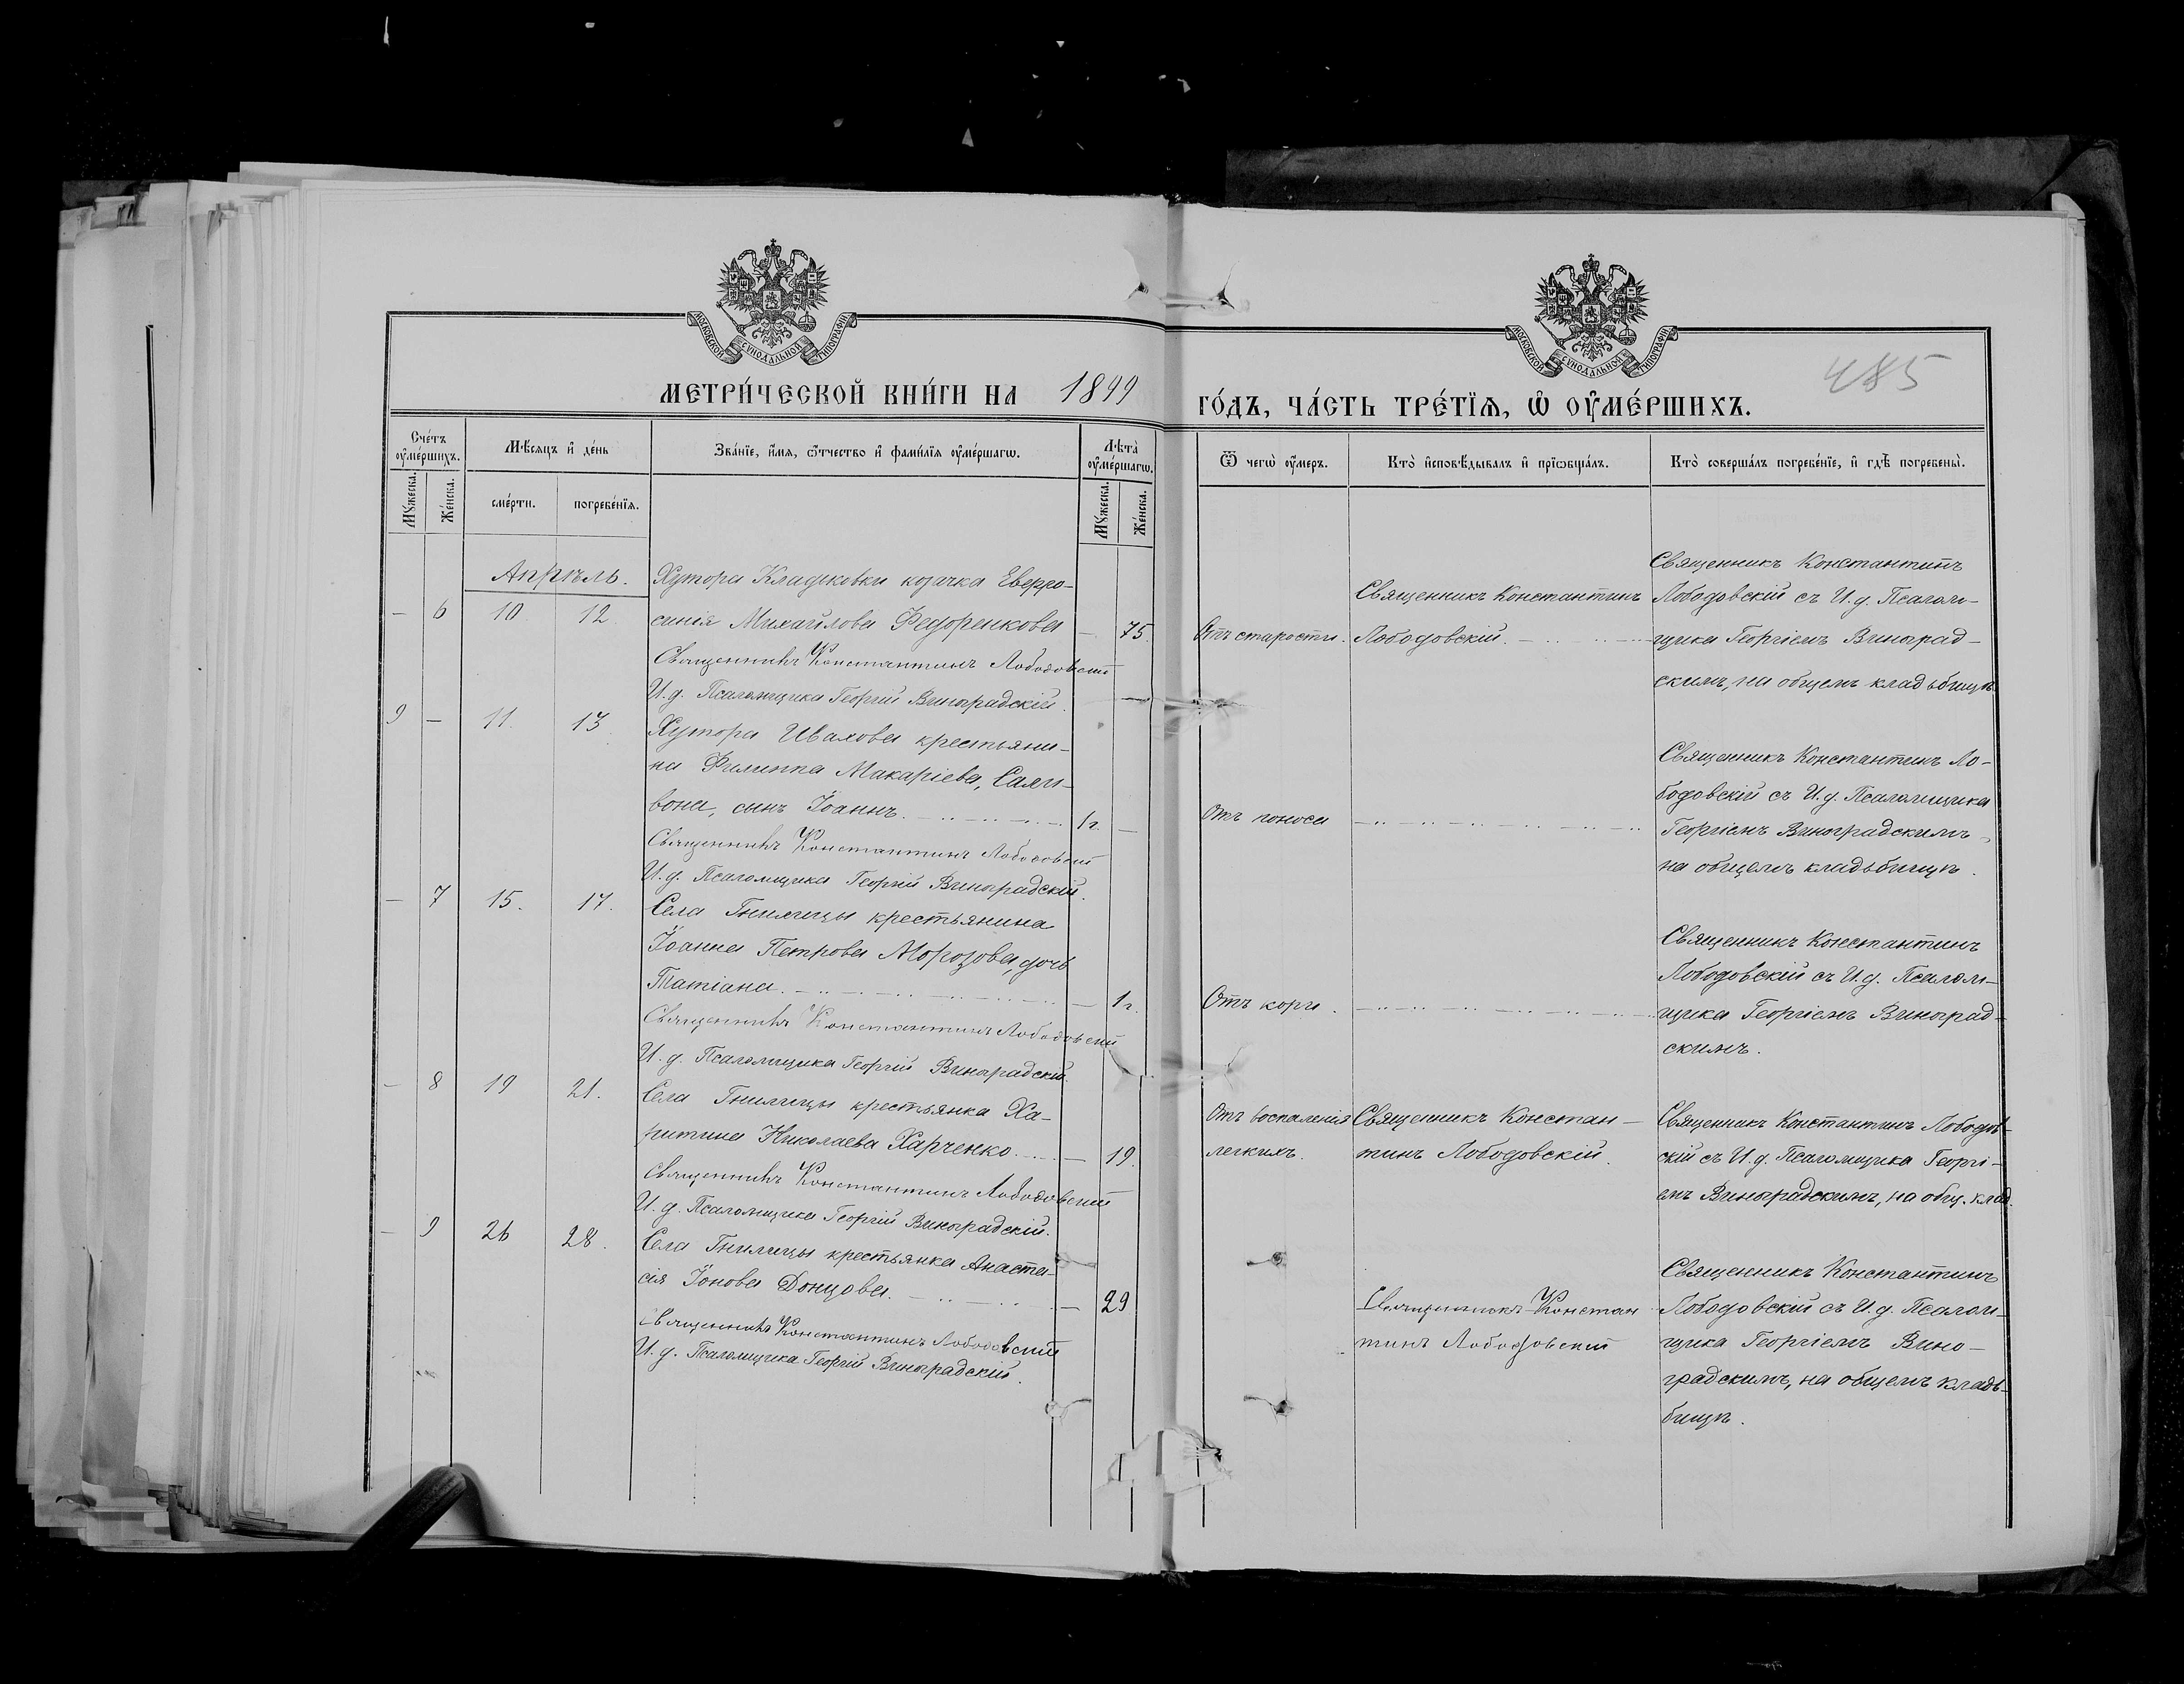 МОСКОВСКОЙ СУНОДАЛЬНОЙ ТИПОГРАФІИ
МОСКОВСКОЙ СУНОДАЛЬНОЙ ТИПОГРАФІИ
485
МЕТРИ́ЧЕСКОЙ КНИ́ГИ НА 1899 ГО́ДЪ, ЧА́СТЬ ТРЕ́ТЇѦ, Ѡ ОУМЕ́РШИХЪ.
Сче́тъ оуме́ршихъ.
Мꙋ́жеска.
Же́нска.
Мѣ́сяцъ и де́нь
сме́рти.
погребе́нїѧ.
Зва́нїе, и́мѧ, ѻ́тчество и фами́лїѧ оуме́ршагѡ.
Лѣта̀ оуме́ршагѡ.
Мꙋ́жеска.
Же́нска.
Ѿ чегѡ̀ оу́меръ.
Кто̀ исповѣ́дывалъ и прїѡбща́лъ.
Кто̀ соверша́лъ погребе́нїе, и гдѣ̀ погребены̀.
Апрѣль.
— 6 10 12
Хутора Кладьковки козачка Евфро-
синія Михайлова Федоренкова — 75.
Священникъ Константинъ Лободовскій
И. д. Псаломщика Георгій Виноградскій.
Отъ старости.
Священникъ Константинъ
Лободовскій.
Священникъ Константинъ
Лободовскій съ И. д. Псалом-
щика Георгіемъ Виноград-
скимъ, на общемъ кладбищѣ
9 — 11. 13
Хутора крестьяни-
на Филиппа Макаріева,
сынъ Іоаннъ. 1 г. —
Священникъ Константинъ Лободовскій
И. д. Псаломщика Георгій Виноградскій.
Отъ поноса
Священникъ Константинъ Ло-
бодовскій съ И. д. Псаломщика
Георгіемъ Виноградскимъ,
на общемъ кладьбищѣ.
— 7 15. 17.
Села Гнилицы крестьянина
Іоанна Петрова Морозова, дочь
Татіана. — 1 г.
Священникъ Константинъ Лободовскій
И. д. Псаломщика Георгій Виноградскій.
Отъ кори.
Священникъ Константинъ
Лободовскій съ И. д. Псалом-
щика Георгіемъ Виноград-
скимъ.
— 8 19 21.
Села Гнилицы крестьянка Ха-
ритина Николаева Харченко. — 19.
Священникъ Константинъ Лободовскій
И. д. Псаломщика Георгій Виноградскій.
Отъ воспаленія
легкихъ.
Священникъ Констан-
тинъ Лободовскій.
Священникъ Константинъ Лободов-
скій съ И. д. Псаломщика Георгі-
емъ Виноградскимъ, на общ. клад.
— 9 26 28.
Села Гнилицы крестьянка Анаста-
сія Іонова Донцова. — 29
Священникъ Константинъ Лободовскій
И. д. Псаломщика Георгій Виноградскій.
Священникъ Констан
тинъ Лободовскій
Священникъ Константинъ
Лободовскій съ И. д. Псалом-
щика Георгіемъ Вино-
градскимъ, на общемъ кладь-
бищѣ.